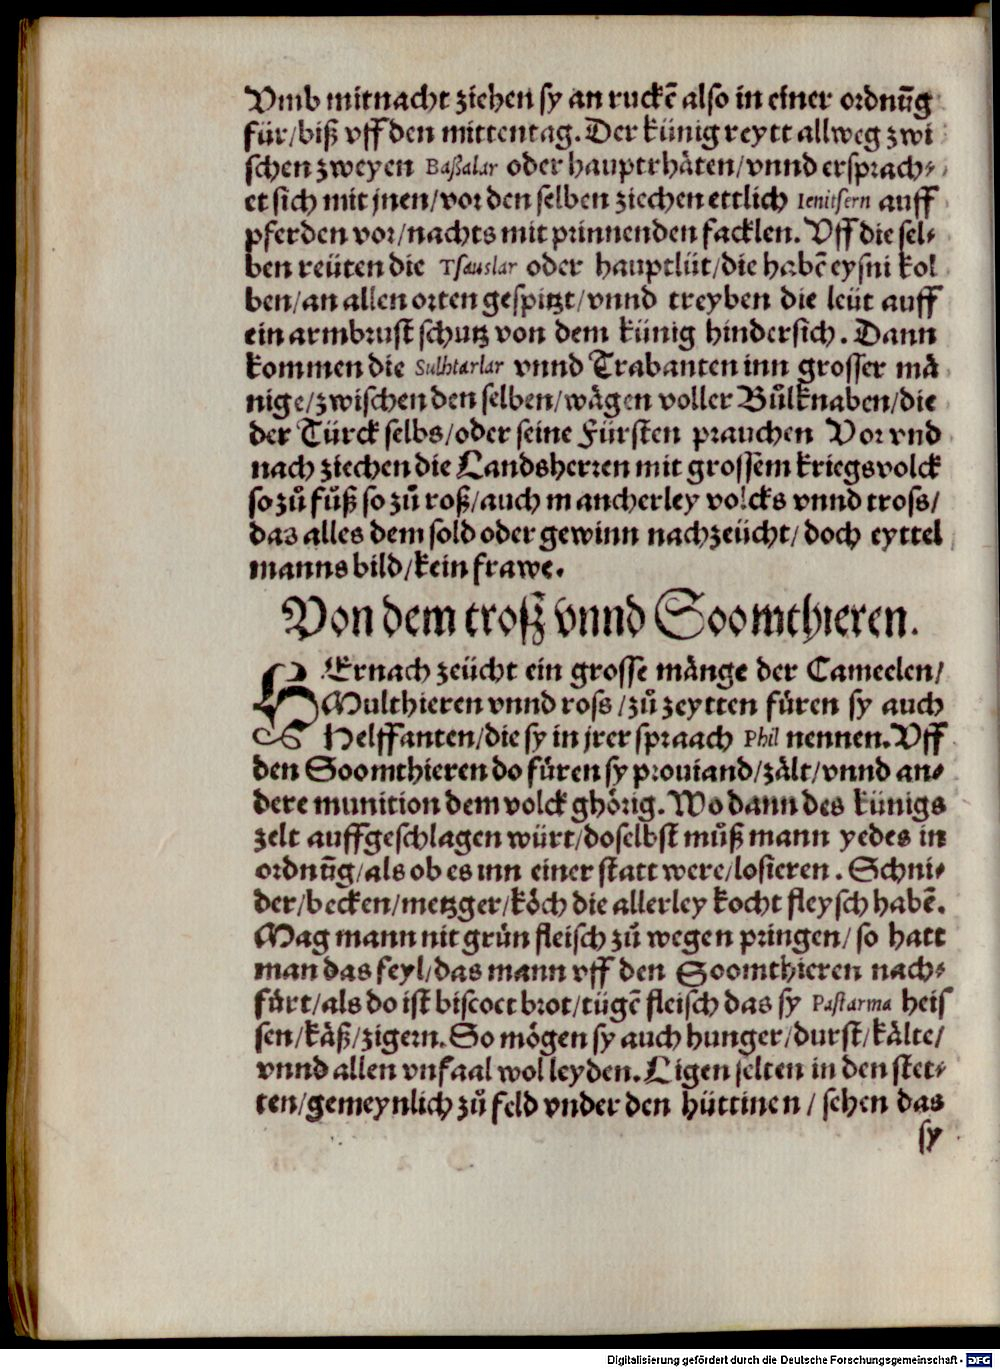 Vmb mitnacht ziehen sy an ruckē also in einer ordnūg
für/biß vff den mittentag. Der künig reytt allweg zwi
schen zweyen Baßalar oder hauptrhäten/vnnd ersprach⸗
et sich mit jnen/vor den selben ziechen ettlich Ienitsern auff
pferden vor/nachts mit prinnenden facklen. Vff die sel⸗
ben reüten die Tsauslar oder hauptlüt/die habē eysni kol
ben/an allen orten gespitzt/vnnd treyben die leüt auff
ein armbrust schutz von dem künig hindersich. Dann
kommen die Sulhtarlar vnnd Trabanten inn grosser mä
nige/zwischen den selben/wägen voller Bůlknaben/die
der Türck selbs/oder seine Fürsten prauchen Vor vnd
nach ziechen die Landsherren mit grossem kriegsvolck
so zů fůß so zů roß/auch mancherley volcks vnnd tross/
das alles dem sold oder gewinn nachzeücht/doch eyttel
manns bild/kein frawe.
Von dem troß vnnd Soomthieren.
HErnach zeücht ein grosse mänge der Cameelen/
Multhieren vnnd ross/zů zeytten füren sy auch
Helffanten/die sy in jrer spraach Phil nennen. Vff
den Soomthieren do füren sy prouiand/zält/vnnd an⸗
dere munition dem volck ghörig. Wo dann des künigs
zelt auffgeschlagen würt/doselbst můß mann yedes in
ordnūg/als ob es inn einer statt were/losieren. Schni⸗
der/becken/metzger/köch die allerley kocht fleysch habē.
Mag mann nit grün fleisch zů wegen pringen/so hatt
man das feyl/das mann vff den Soomthieren nach⸗
fürt/als do ist biscoct brot/tügē fleisch das sy Pastarma heis
sen/käß/zigern. So mögen sy auch hunger/durst/kälte/
vnnd allen vnfaal wol leyden. Ligen selten in den stet⸗
ten/gemeynlich zů feld vnder den hüttinen/sehen das
sy
Digitalisierung gefördert durch die Deutsche Forschungsgemeinschaft - DFG